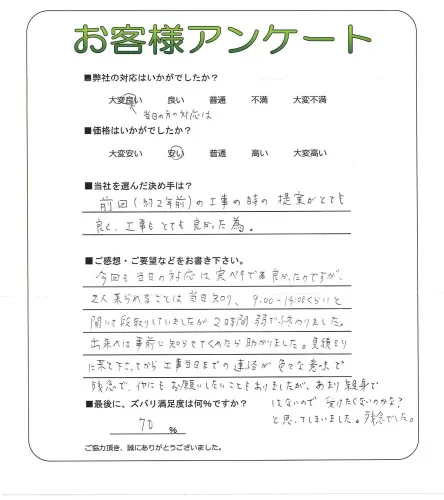 お客様アンケート
■弊社の対応はいかがでしたか?
大変良い 良い 普通 不満 大変不満
当日の方の対応は
■価格はいかがでしたか?
大変安い 安い 普通 高い 大変高い
■当社を選んだ決め手は?
前回(約2年前)の工事の時の提案がとても
良く、工事もとても良かった為。
■ご感想・ご要望などをお書き下さい。
今回も当日の対応は実べテで良かったのですが、
2人来られることは当日知り、9:00~14:00くらいと
聞いて段取りしていましたが2時間弱で終わりました。
出来れば事前に知らせてくれたら助かりました。見積もり
に来て下さってから工事当日までの連絡が色々な意味で
残念で、他にもお願いしたいこともありましたが、あまり親身で
はないので受けたくないのかな?
と思ってしまいました。残念でした。
■最後に、ズバリ満足度は何%ですか?
70 %
ご協力頂き、誠にありがとうございました。